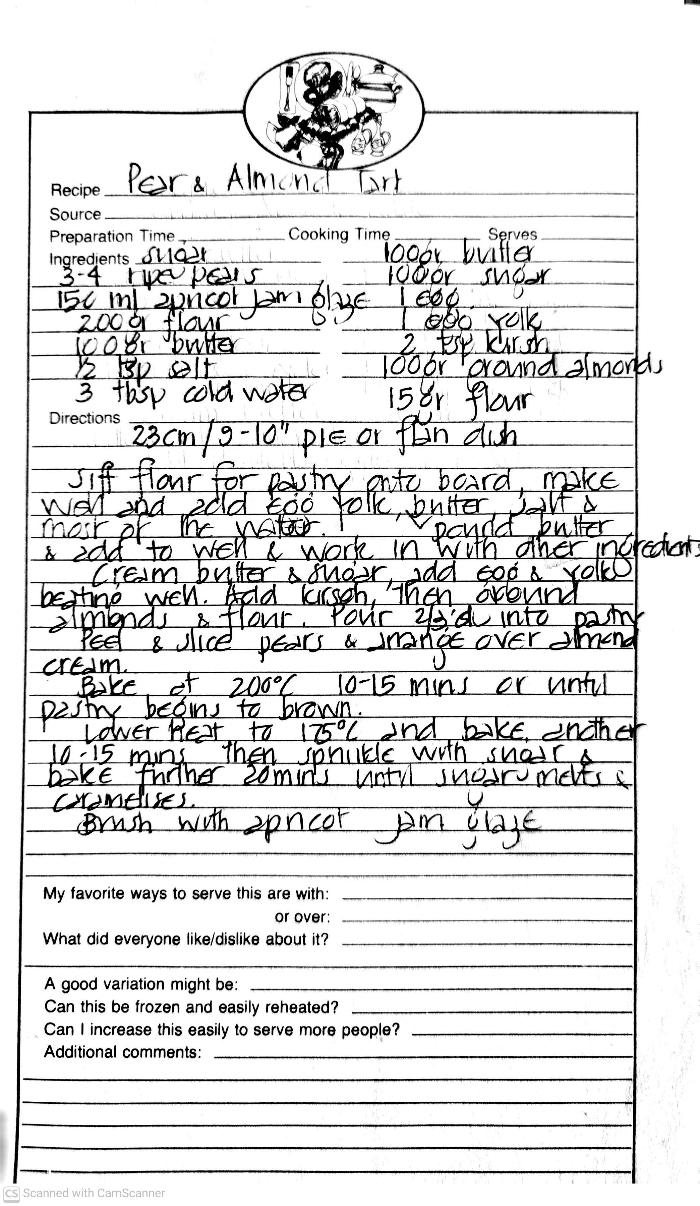 Recipe Pear & Almond Tart
Source
Preparation Time Cooking Time Serves
Ingredients sugar 100gr butter
3-4 ripe pears 100gr sugar
150 ml apricot jam glaze 1 egg
200gr flour 1 egg yolk
100gr butter 2 tsp kirsh
½ tsp salt 100gr ground almonds
3 tbsp cold water 15gr flour
Directions
23cm/9-10" pie or flan dish
Sift flour for pastry onto board, make
well and add egg yolk, butter, salt &
most of the water. pound butter
& add to well & work in with other ingredients
Cream butter & sugar, add egg & yolk
beating well. Add kirsch, then ground
almonds & flour. Pour into pastry
Peel & slice pears & arrange over almond
cream.
Bake at 200°C 10-15 mins or until
pastry begins to brown.
Lower heat to 175°C and bake another
10-15 mins. Then sprinkle with sugar &
bake further 20mins until sugar melts &
caramelises.
Brush with apricot jam glaze
My favorite ways to serve this are with:
or over:
What did everyone like/dislike about it?
A good variation might be:
Can this be frozen and easily reheated?
Can I increase this easily to serve more people?
Additional comments:
CS Scanned with CamScanner